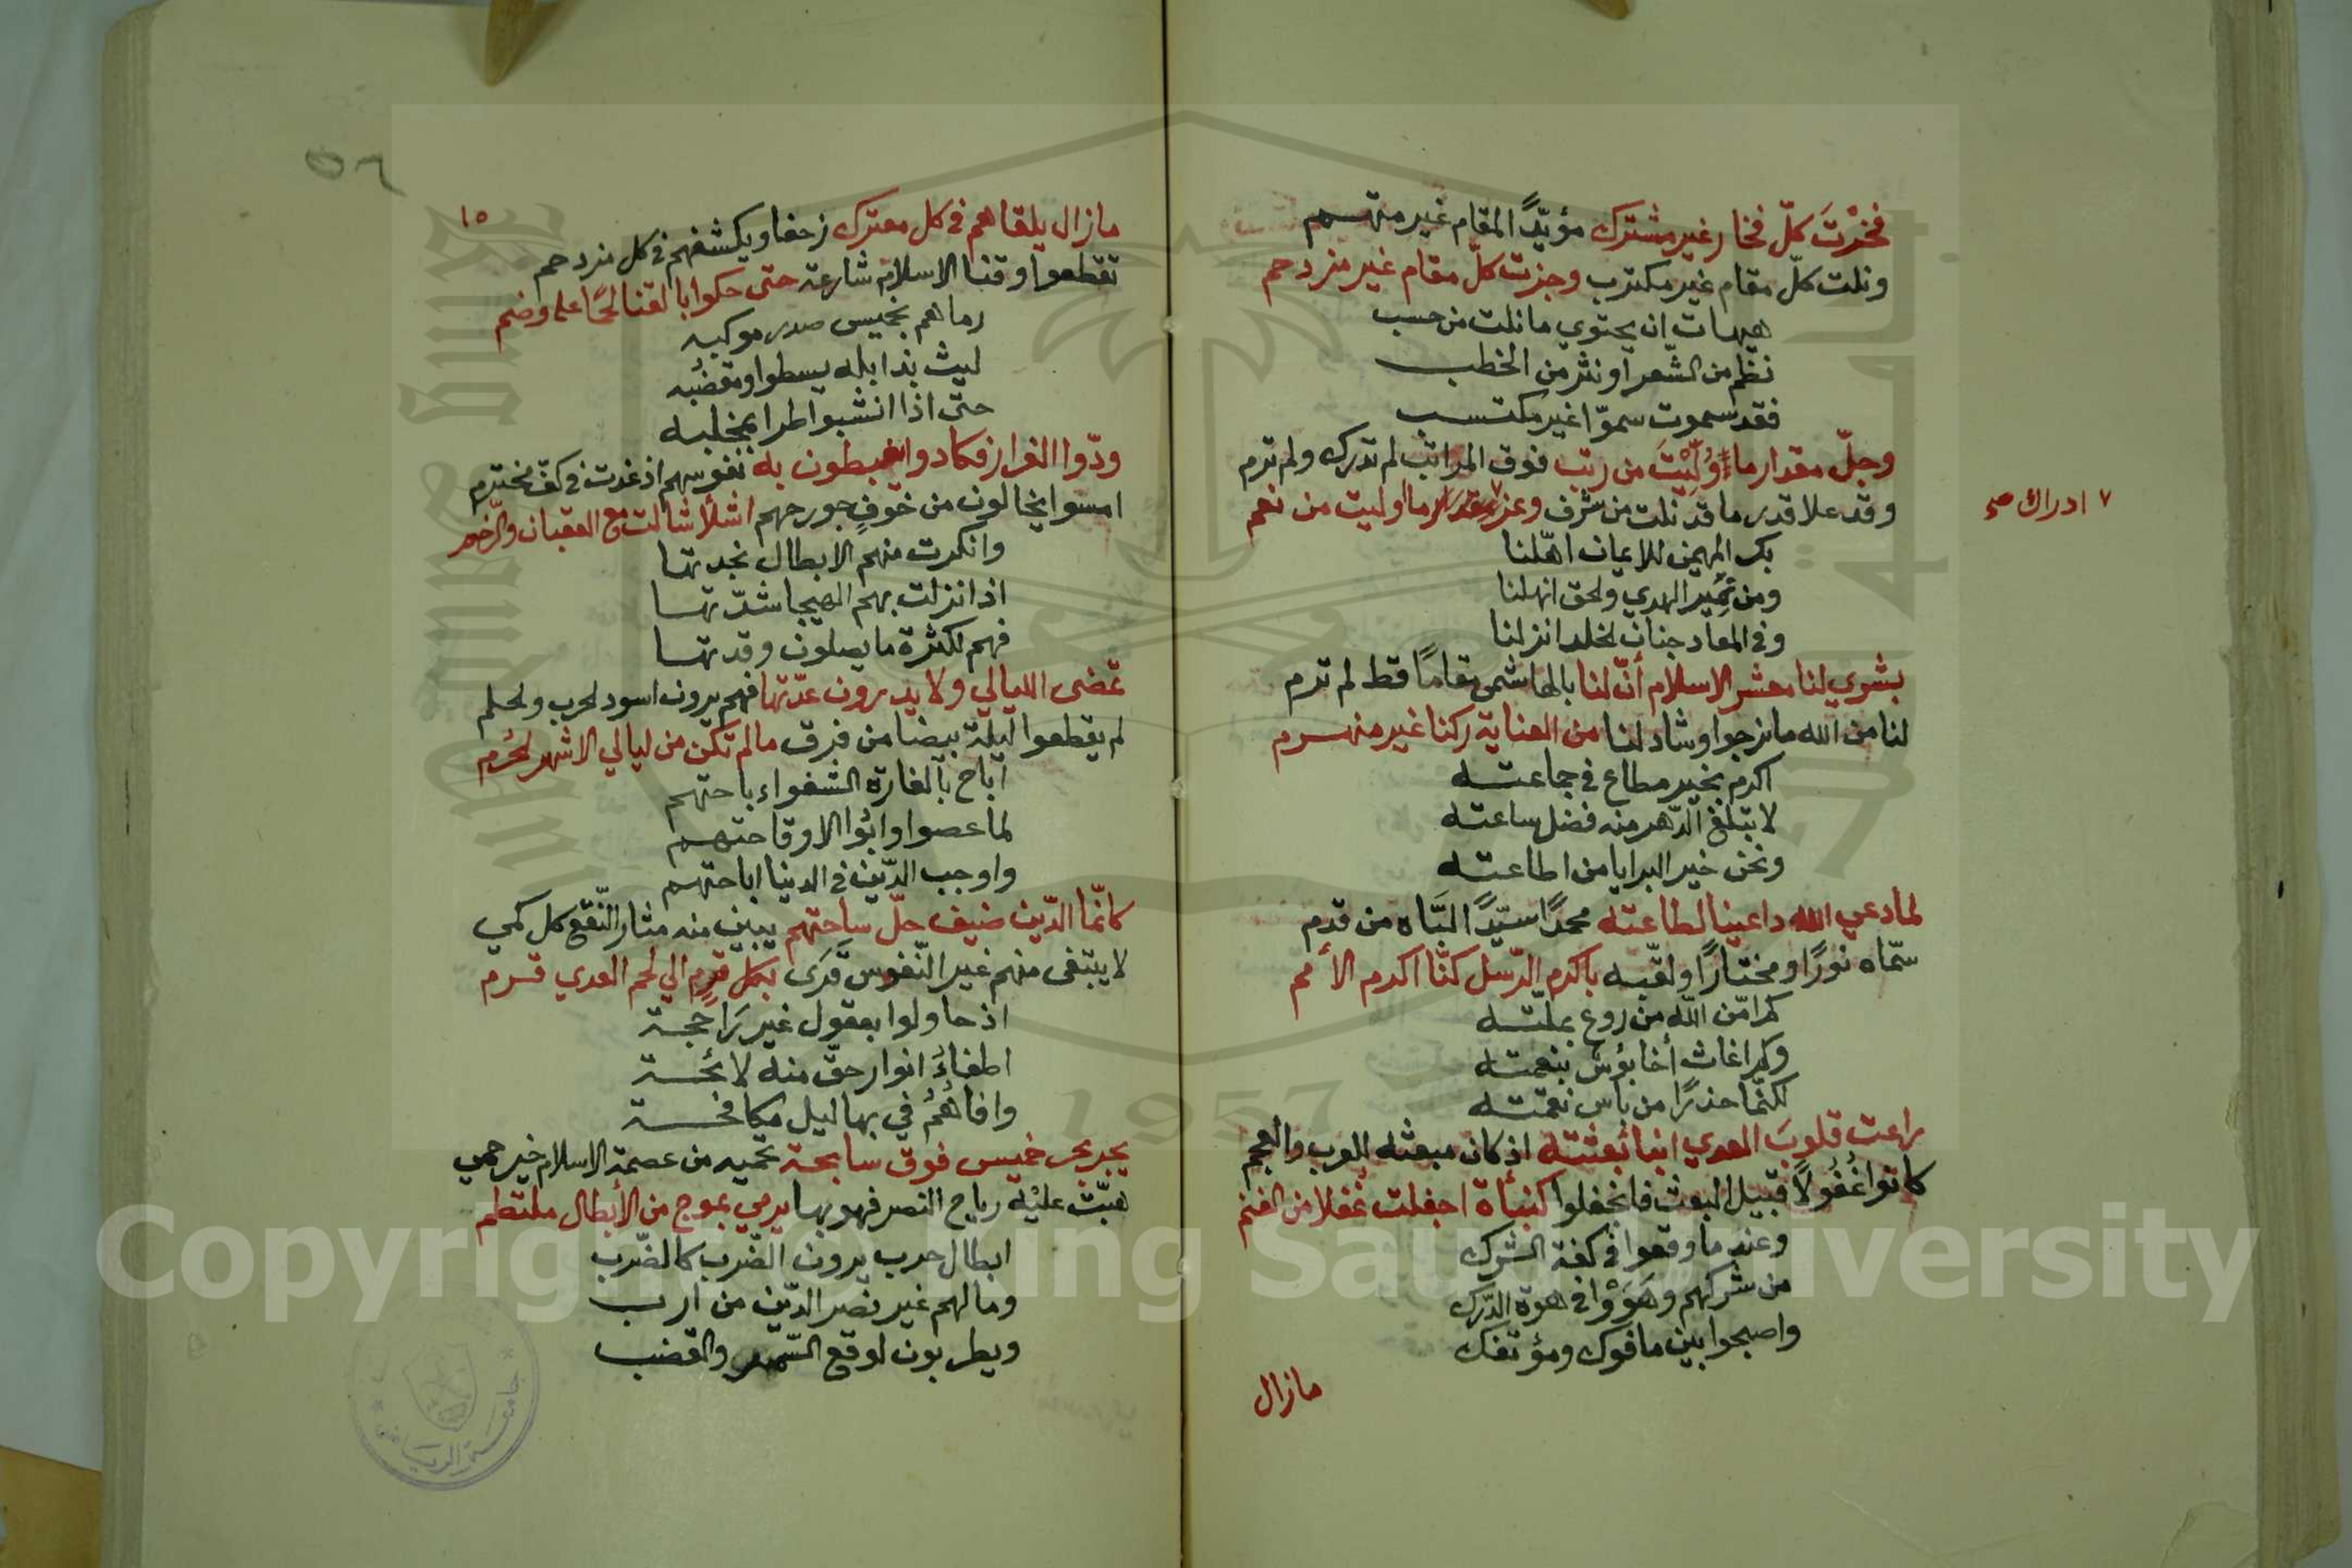 فخُزتَ كلّ فخار غير مشترك مؤيّدًا لمقام غير متهم
ونلت كلّ مقام غير مكترب وجزت كلّ مقام غير مزدحم
هيهات ان يحتوي ما نلت من حسب
نظم من الشّعر او نثر من الخطب
فقد سموت سموّا غير مكتسب
وجلّ مقدار ما وُلِّيْتَ من رتب فوق المراتب لم تدرك ولم ترم
وقد علا قدر ما قد نلت من شرف وعز ٧ مقدار ما اوليت من نعم
٧ ادراك صح
بك المهيمن للايمان اهّلنا
ومن نمير الهدي والحق انهلنا
وفي المعاد جنان الخلد انزلنا
بشري لنا معشر الاسلام أنّ لنا بالهاشمي مقامًا قط لم ترم
لنا من الله ما نرجوا وشاد لنا من العناية ركنا غير منهرم
اكرم بخير مطاع في جماعته
لا تبلغ الدّهر منه فضل ساعته
ونحن خير البرايا من اطاعته
لما دعي الله داعينا لطاعته محمدًا سيّدًا انتباه من قدم
سمّاه نورًا ومختارًا ولقّبه باكرم الرّسل كنّا اكرم الأمم
كم امّن اللّه من روع بملّته
وكم اغاث أخا بؤس بنعمته
لكنّما حذرًا من باس نقمته
راعت قلوبَ العدي انبا بُعثته اذ كان مبعثه للعرب والعجم
كانوا غُفُولاً قبيل البعث فانجفلوا كنبأة اجفلت غُفلا من الغنم
وعند ما وقعوا في كفة الشرك
من شركهم وهَوَوْا في هوّة الدّرك
واصبحوا بين مافوك ومؤتفك
مازال
٥٦
١٥
مازال يلقاهم في كل معترك زحفا ويكشفهم في كل مزدحم
تقطعوا وقنا الاسلام شارعة حتى حكوا بالقنا لحمًا على وضم
رماهم بخميس صدر موكبه
ليث بذابله يسطوا ومقضبُه
حتى اذا انشبوا طرا بمخلبه
ودّوا الفرار فكادوا يغبطون به نفوسهم اذ غدت في كفّ مخترم
امسوا يخالون من خوفٍ جورحهم اشلأ شالت مع العقبان والرّخم
وانكرت منهم الابطال نجدتها
اذ انزلت بهم الهيجا شدّتها
فهم لكثرة ما يصلون وقدتها
تمضى الليالي ولا يدرون عدّتها فهم يرون اسود الحرب والحلم
لم يقطعوا ليلة بيضا من فرق مالم تكن من ليالي الاشهر الحُرم
اباح بالغارة الشغواء باحتهم
لما عصوا وابُوا الا وقاحتهم
واوجب الدّين في الدينا اباحتهم
كانّما الدّين ضيف حلّ ساحتهم يبين منه مثار النّقع كل كمي
لا يبتغى منهم غير النّفوس قَرَى بكل قرِم الي لحم العدي قرم
اذ حاولوا بعقول غير رَاجحة
اطفاءُ انوار حقّ منه لائحة
وافاهُمُ في بهاليل مكافحة
يجر بحر خميس فوق سابحة تحميه من عصمة الاسلام خير حمي
هبّت عليْه رياح النصر فهو بها يرمي بموج من الأبطال ملتطم
ابطال حرب يرون الضّرب كالضّرب
ومالهم غير نصر الدّين من ارب
ويطربون لوقع السّمر والقضب
جامعة الرياض
1957
Copyright © King Saud University